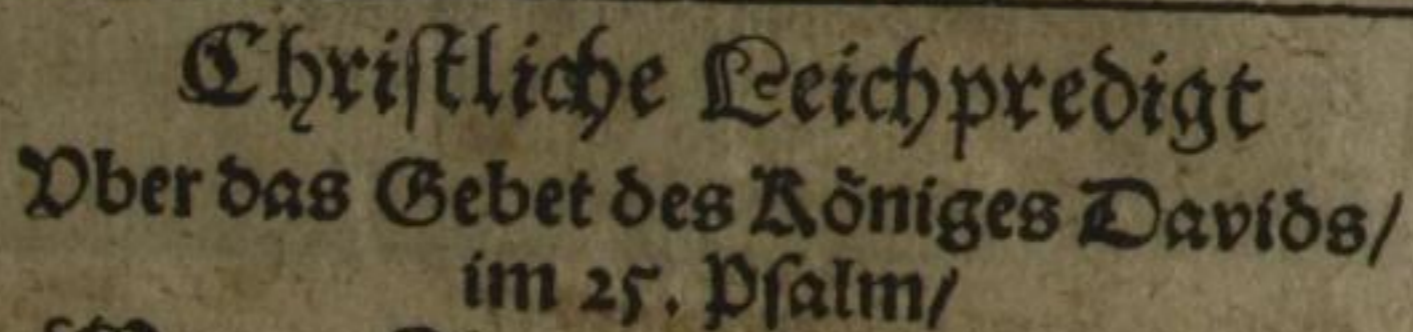 Chriſtliche Leichpredigt
Vber das Gebet des Königes Davids/
im 25. Pſalm/